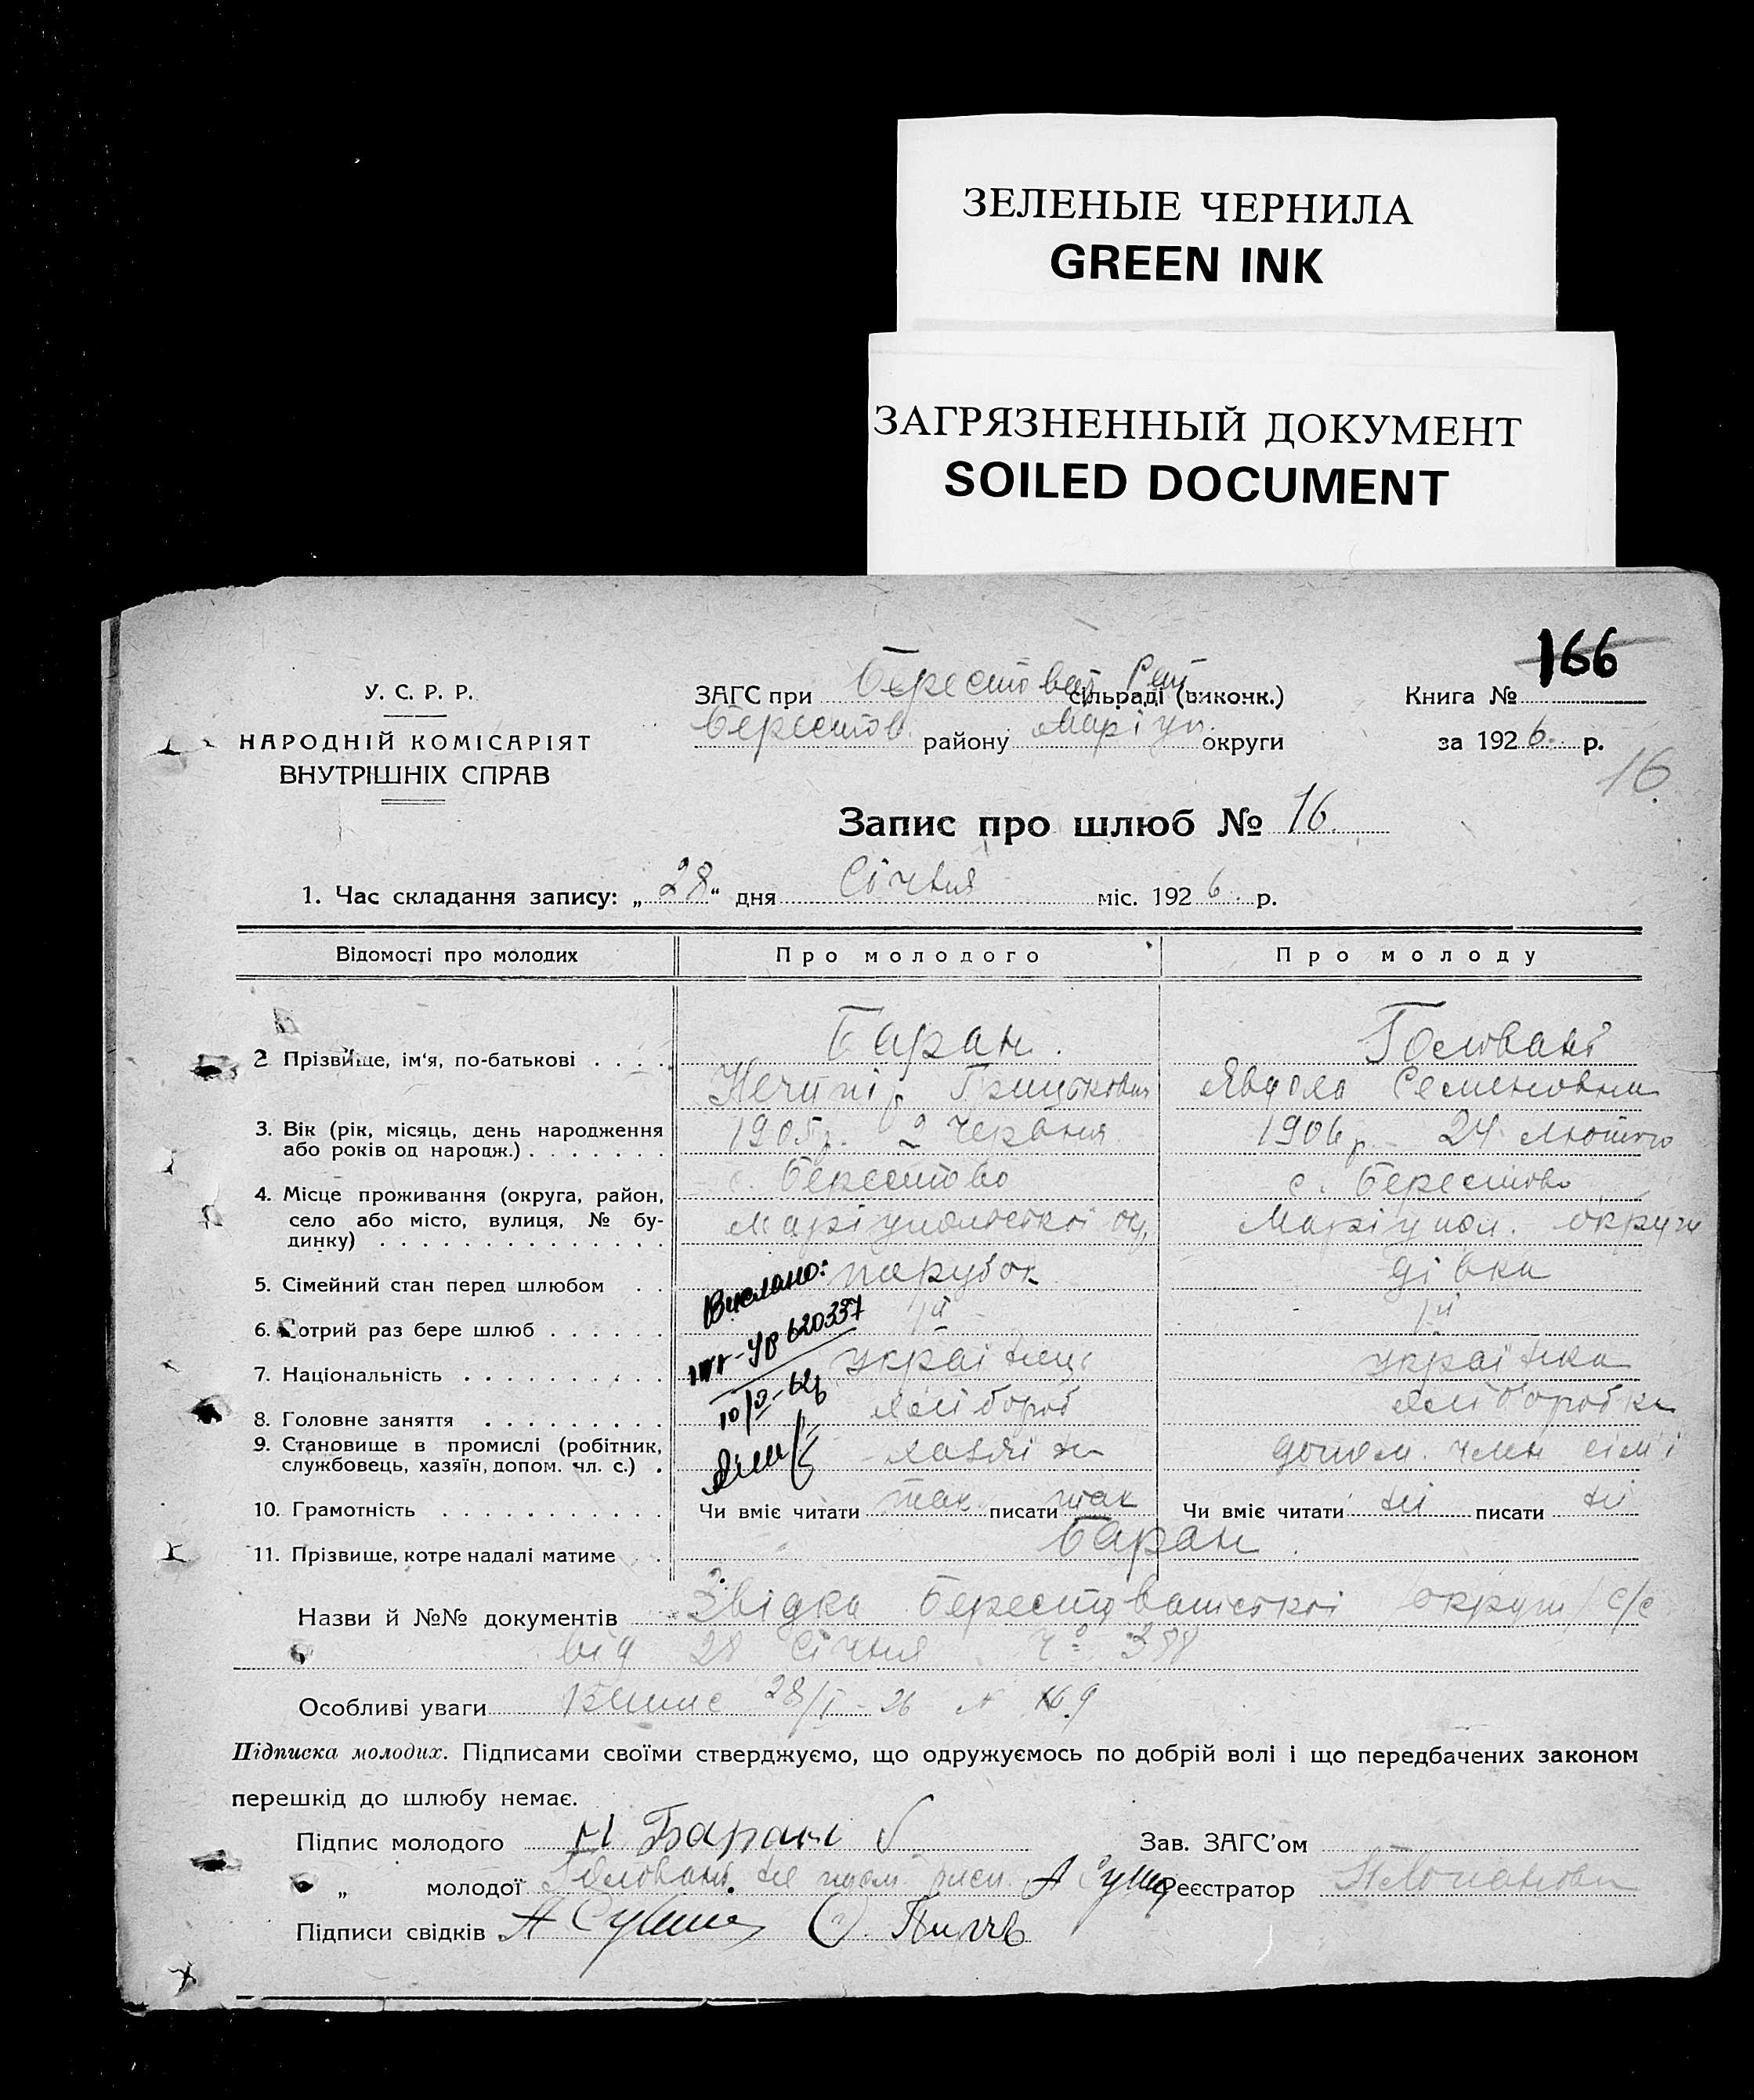 ЗЕЛЕНЫЕ ЧЕРНИЛА
GREEN INK
ЗАГРЯЗНЕННЫЙ ДОКУМЕНТ
SOILED DOCUMENT
166
У. С. Р. Р.
НАРОДНІЙ КОМІСАРІЯТ
ВНУТРІШНІХ СПРАВ
ЗАГС при Берестоват Рай сільраді (виконк.)
Берестов. району Маріуп. округи
Книга №
за 1926 р.
16.
Запис про шлюб № 16.
1. Час складання запису: „28“ дня Січня міс. 1926. р.
Відомості про молодих Про молодого Про молоду
2 Прізвище, ім'я, по-батькові Баран. Головань
Нечипір Грицькович Явдоха Семеновна
3. Вік (рік, місяць, день народження або років од народж.) 1905р. 2 Червня 1906 р. 24 лютого
4. Місце проживання (округа, район, село або місто, вулиця, № будинку) с. Берестово с. Берестово
Маріупольської ок, Маріупол. округи
5. Сімейний стан перед шлюбом парубок дівка
6. Котрий раз бере шлюб 1й 1й
7. Національність українець українка
8. Головне заняття хлібороб хліборобка
9. Становище в промислі (робітник, службовець, хазяїн, допом. чл. с.) хазяїн допом. член сім'ї
10. Грамотність Чи вміє читати так писати так Чи вміє читати ні писати ні
11. Прізвище, котре надалі матиме Баран.
Выслано:
УР 620337
Назви й №№ документів Звідка округи с/с
від 28 Січня ч° 388
Особливі уваги 28/I-26 № 9
Підписка молодих. Підписами своїми стверджуємо, що одружуємось по добрій волі і що передбачених законом
перешкід до шлюбу немає.
Підпис молодого Н Баран Зав. ЗАГС'ом
„ молодої Головань не А Реєстратор
Підписи свідків А